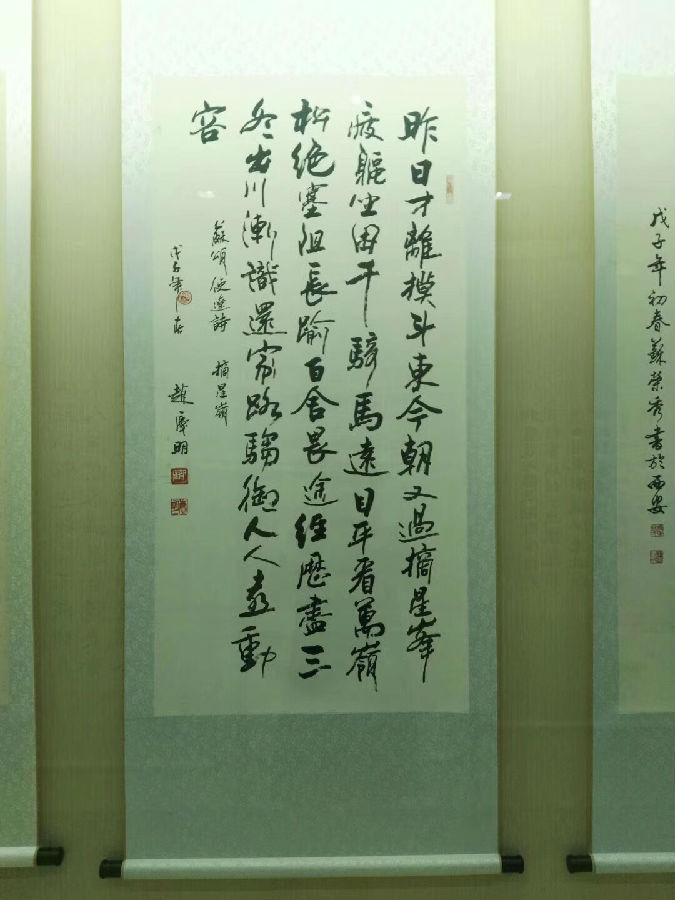 昨日才離模斗東今朝又過摘星峯
疲軀坐困千騎馬遠目平看萬嶺
松絕塞阻長踰百舍畏途經歷盡三
冬出川漸識還家路騶御人人喜動
容
蘇頌使遼詩 摘星嶺
趙慶明
戊子年初春蘇榮秀書於西安